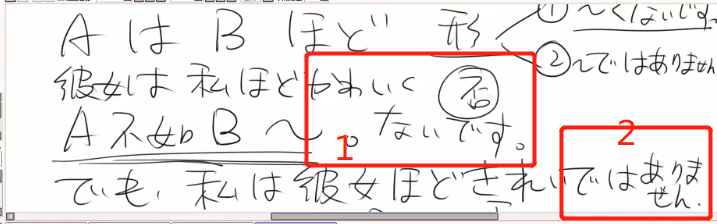 AはBほど 形
①～くないです。
②～ではありません
彼女は私ほどかわいく 否
ないです。
A不如B～。
1
2
でも、私は彼女ほどきれいではありません.